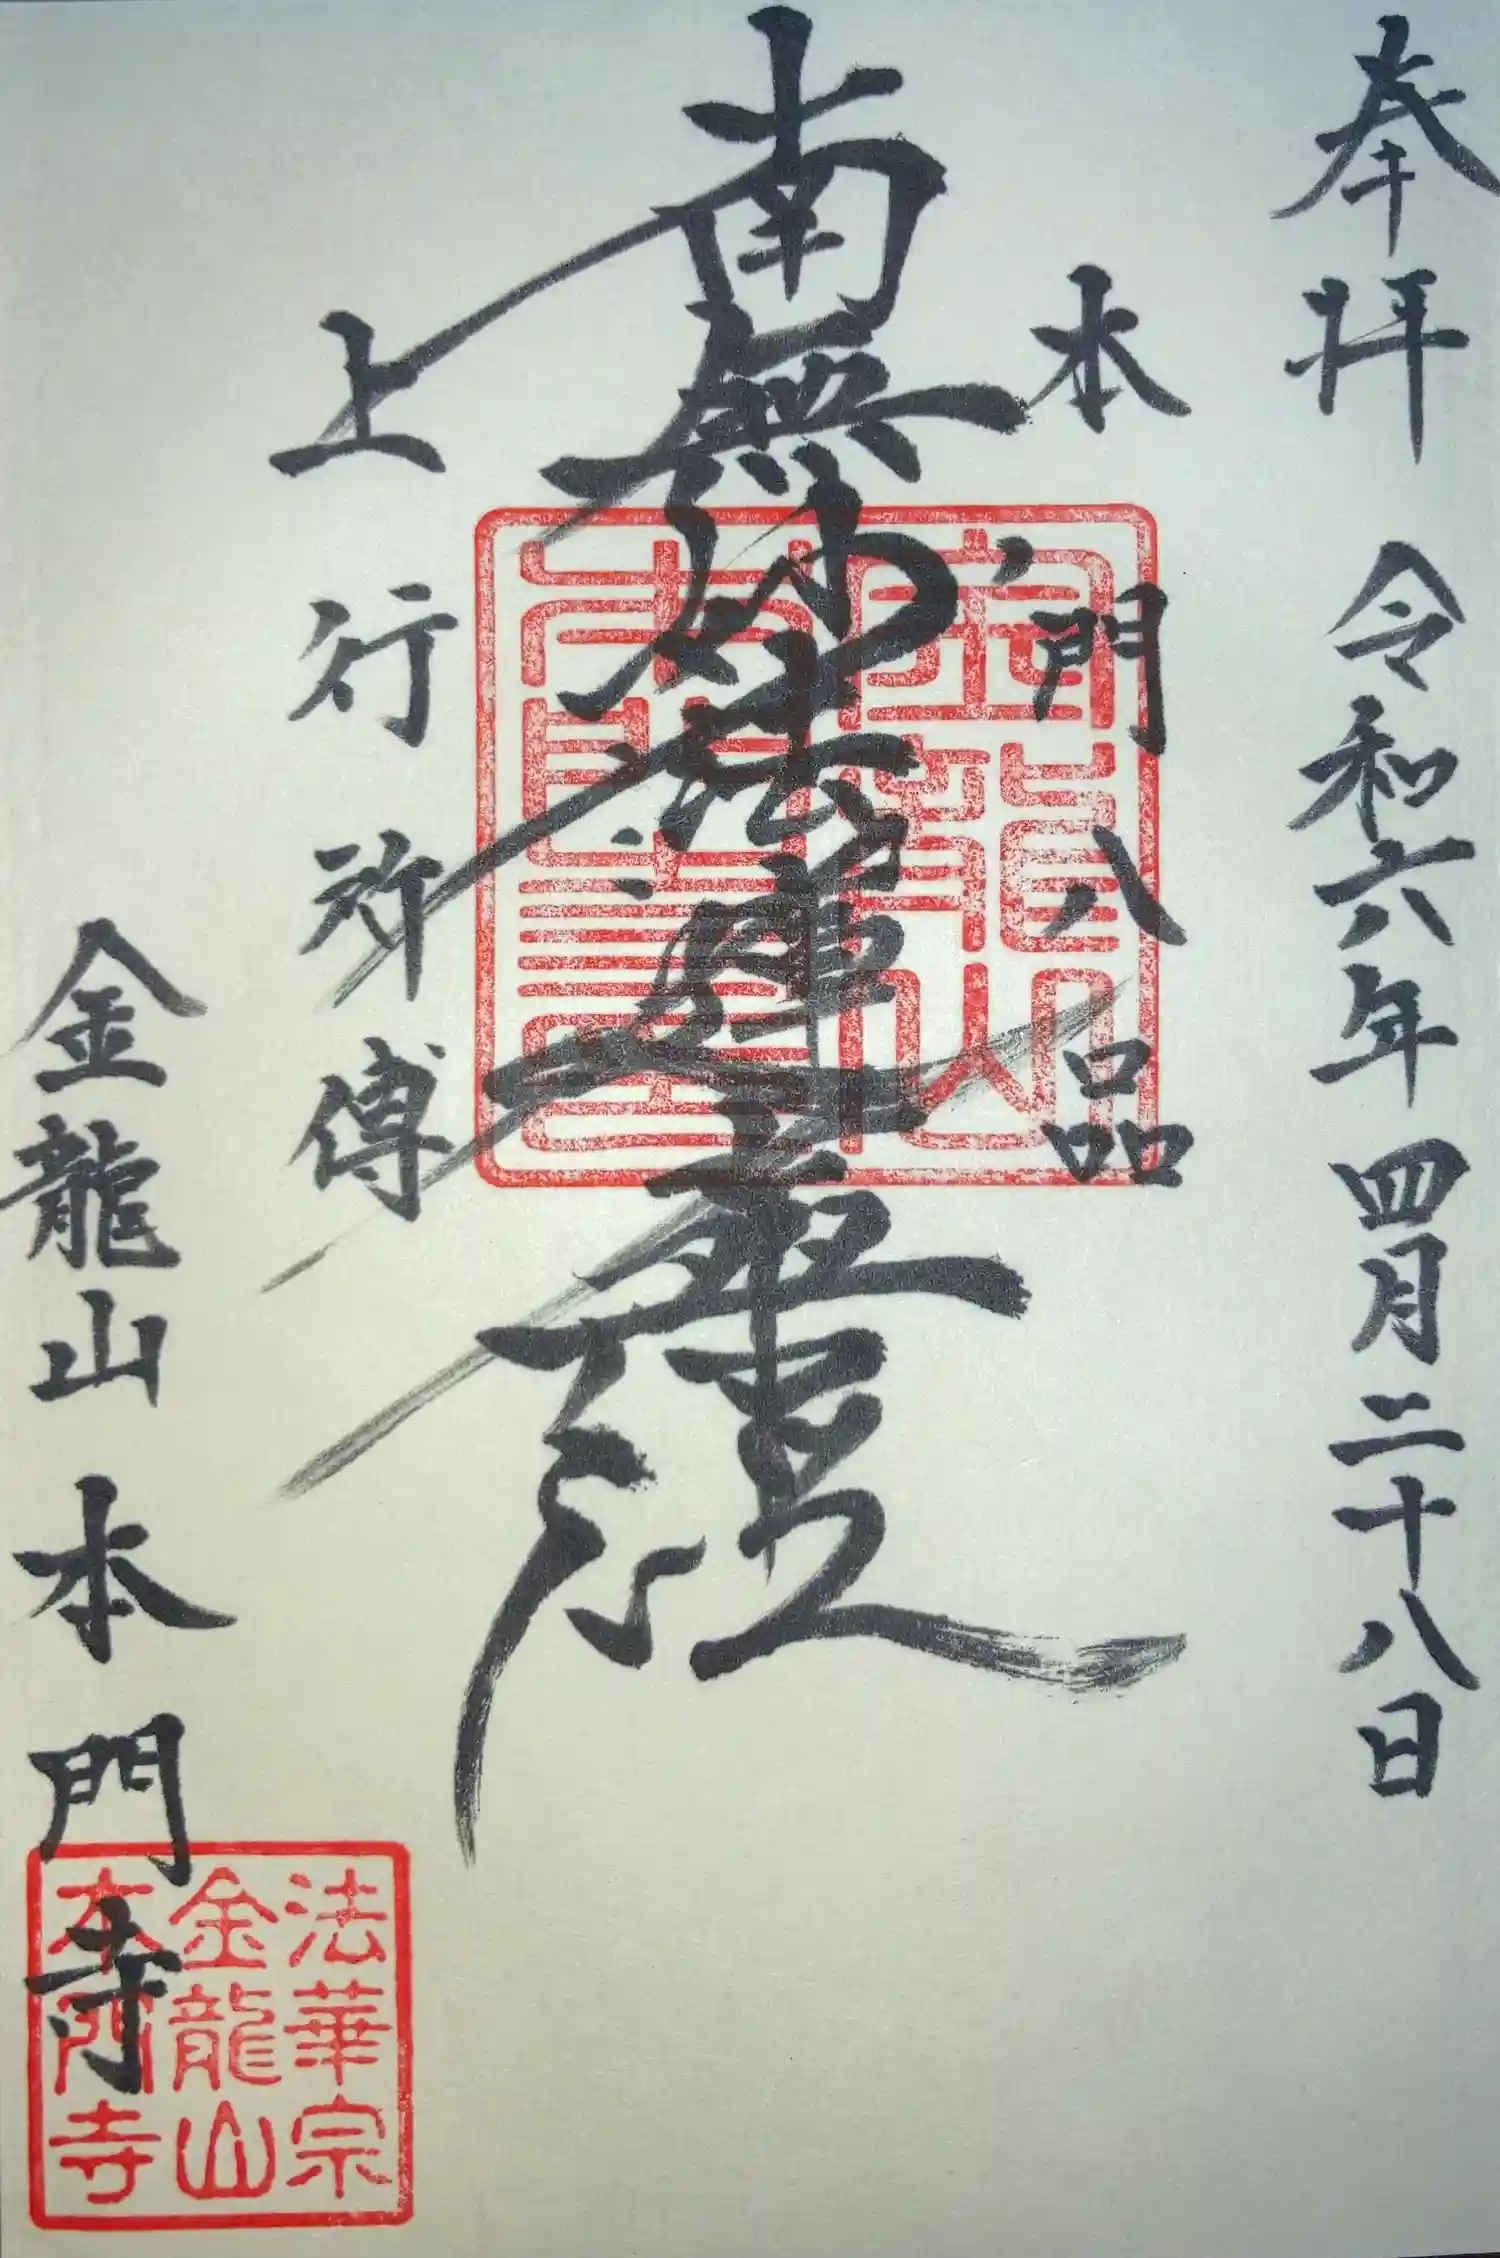 奉拝 令和六年 四月二十八日
本門八品
南無妙法蓮華經
上行所傳
金龍山本門寺
金龍山
法華宗
金龍山
本門寺